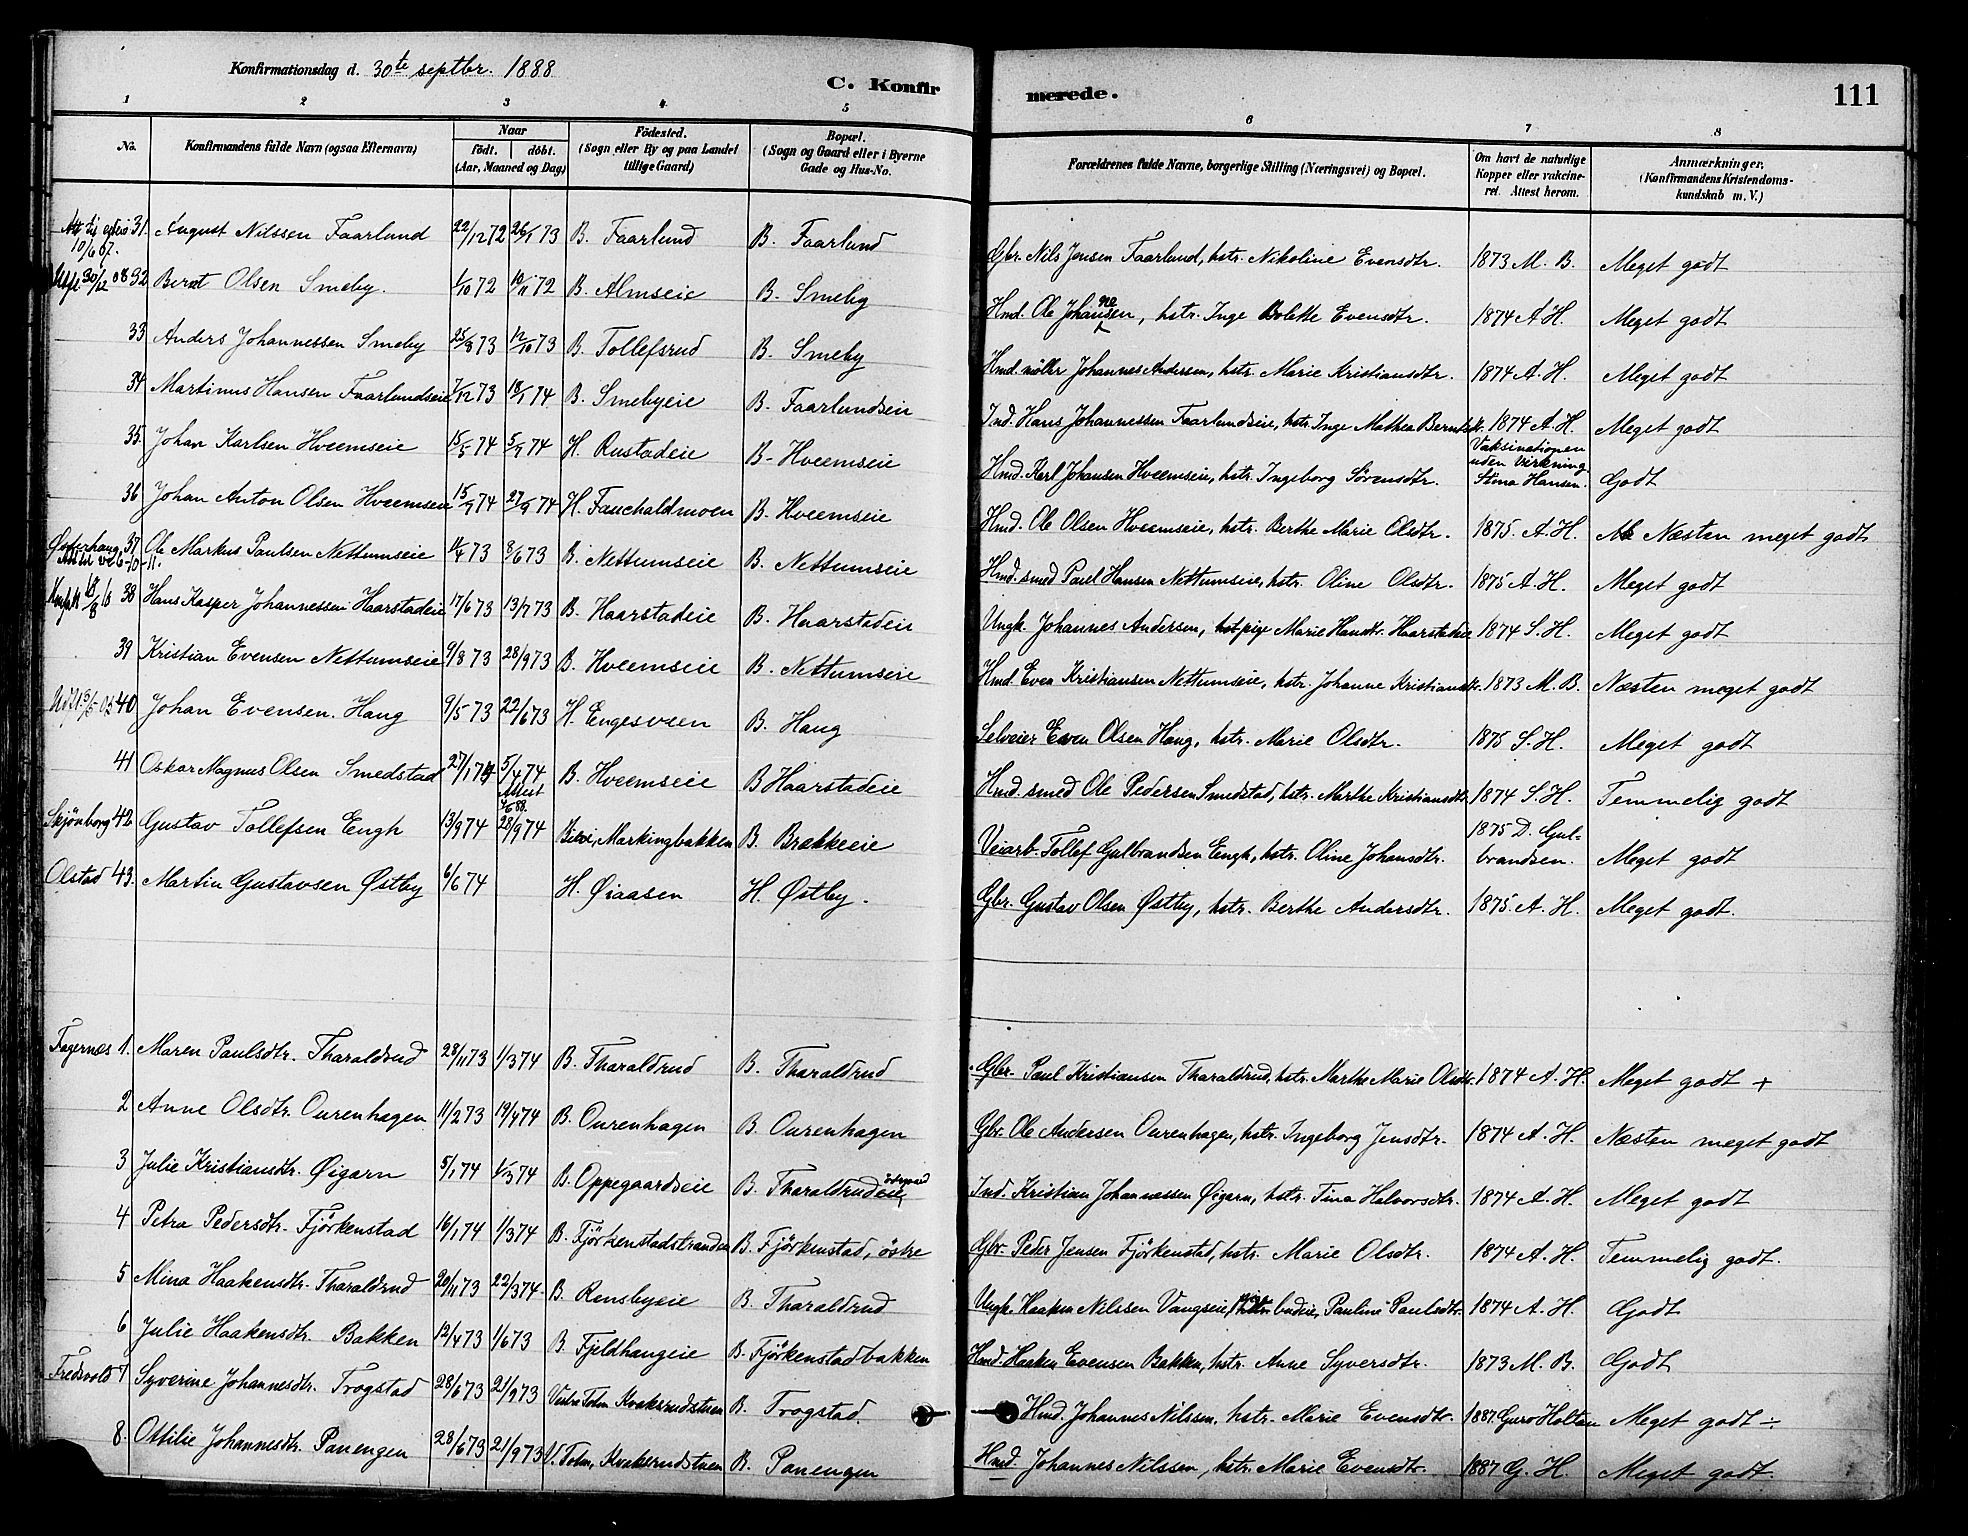 Konfirmationsdag d. 30te septbr. 1888
C. Konfirmerede.
111
1 2 3 4 5 6 7 8
No. Konfirmandens fulde Navn (ogsaa Efternavn) Naar födt. döbt. (Aar, Maaned og Dag) Födested. (Sogn eller By og paa Landet tillige Gaard) Bopæl. (Sogn og Gaard eller i Byerne Gade og Hus-No. Forældrenes fulde Navne, borgerlige Stilling (Næringsvei) og Bopæl. Om havt de naturlige Kopper eller vakcineret. Attest herom. Anmærkninger, (Konfirmandens Kristendomskundskab m. V.)
10/6 07. 31. August Nilssen Faarlund 22/12 72 26/1 73 B. Faarlund B. Faarlund Gbr. Nils Jensen Faarlund, hstr. Nikoline Evensdtr. 1873 M. B. Meget godt
30/12 08 32 Bernt Olsen Smeby. 1/10 72 10/11 72 B. Almseie B. Smeby Hmd. Ole Johannesen, hstr. Inge Bolette Evensdtr. 1874 A. H. Meget godt
33 Anders Johannessen Smeby 25/8 73 12/10 73 B. Tollefsrud B. Smeby Hmd. møller Johannes Andersen, hstr. Marie Kristiansdtr. 1874 A. H. Meget godt
34 Martinus Hansen Faarlundseie 7/12 73 18/1 74 B. Smebyeie B. Faarlundseie Ind. Hans Johannessen Faarlundseie, hstr. Inge Mathea Berntsdtr. 1874 A. H. Meget godt
35. Johan Karlsen Hveemseie 15/5 74 5/7 74 H. Rustadeie B. Hveemseie Hmd. Karl Johansen Hveemseie, hstr. Ingeborg Sörensdtr. Vaksinationen uden virkning. Stina Hansen. Godt
36 Johan Anton Olsen Hveemseie 15/7 74 27/9 74 H. Fauchaldmoen B. Hveemseie Hmd. Ole Olsen Hveemseie, hstr. Berthe Marie Olsdtr. 1875. A. H. Næsten meget godt
Østerhaug 37 Ole Markus Paulsen Nettumseie 14/4 73 8/6 73 B. Nettumseie B. Nettumseie Hmd. smed Paul Hansen Nettumseie, hstr. Oline Olsdtr. 1875 A. H. Meget godt
38 Hans Kasper Johannessen Haarstadeie 17/6 73 13/7 73 B. Haarstadeie B. Haarstadeie Ungk. Johannes Andersen, pige Marie Hansdtr. Haarstadeie 1874 S. H. Meget godt
39 Kristian Evensen Nettumseie 9/8 73 28/9 73 B. Hveemseie B. Nettumseie Hmd. Even Kristiansen Nettumseie, hstr. Johanne Kristiansdtr. 1873 M. B. Næsten meget godt
40 Johan Evensen Haug 9/5 73 22/6 73 H. Engesveen B. Haug Selveier Even Olsen Haug, hstr. Marie Olsdtr. 1875 S. H. Meget godt
41 Oskar Magnus Olsen Smedstad 27/1 74 5/4 74 B. Hveemseie B Haarstadeie Hmd. smed Ole Pedersen Smedstad, hstr. Marthe Kristiansdtr. 1874 S. H. Temmelig godt
Skjönborg 42 Gustav Tollefsen Engh 13/9 74 Attest 28/9 74 Markingbakken B. Brækkeeie Veiarb. Tollef Gulbrandsen Engh, hstr. Oline Johansdtr. 1875 D. Gulbrandsen. Meget godt
Olstad 43. Martin Gustavsen Østby 6/6 74 H. Øiaasen H. Østby. Gbr. Gustav Olsen Østby, hstr. Berthe Andersdtr. 1875. A. H. Meget godt.
Fagernæs 1. Maren Paulsdtr. Tharaldrud 28/11 73 1/3 74 B. Tharaldrud B. Tharaldrud Gbr. Paul Kristiansen Tharaldrud, hstr. Marthe Marie Olsdtr. 1874 A. H. Meget godt +
2 Anne Olsdtr. Ourenhagen 11/2 73 19/4 74 B. Ourenhagen B. Ourenhagen Gbr. Ole Andersen Ourenhagen, hstr. Ingeborg Jensdtr. 1874 A. H. Næsten meget godt
3 Julie Kristiansdtr. Øigarn 5/1 74 1/3 74 B. Oppegaardseie B. Tharaldrudeie Ind. Kristian Johannessen Øigarn, hstr. Tina Halvorsdtr. 1874 A. H. Meget godt
4 Petra Pedersdtr. Fjörkenstad 16/1 74 1/3 74 B. Fjörkenstadstranden B. Fjörkenstad, östre Gbr. Peder Jensen Fjörkenstad, hstr. Marie Olsdtr. 1874 A. H. Temmelig godt.
5 Mina Haakensdtr. Tharaldrud 20/11 73 22/3 74 B. Rensbyeie B. Tharaldrud Ungk. Haaken Nilssen Vangseie, pige budeie, Pauline Paulsdtr. 1874 A. H. Godt
6 Julie Haakensdtr. Bakken 12/4 73 1/6 73 B. Fjeldhaugeie B. Fjörkenstadbakken Hmd. Haaken Evensen Bakken, hstr. Anne Syversdtr. 1873 M. B. Godt
Fredsvold 7 Syverine Johannesdtr. Trogstad 28/6 73 21/9 73 Vestre Toten Kvaksrudstuen B. Trogstad. Hmd. Johannes Nilssen, hstr. Marie Evensdtr. 1887. Guro Holtan Meget godt ÷
8. Ottilie Johannesdtr. Panengen 28/6 73 21/9 73 V. Toten, Kvaksrudstuen B. Panengen Hmd. Johannes Nilssen, hstr. Marie Evensdtr. 1887 G. H. Meget godt.